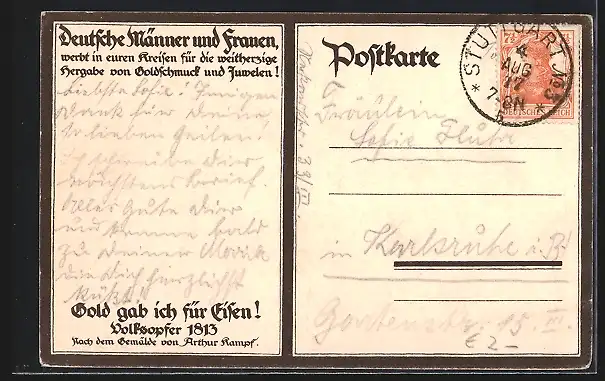 Deutsche Männer und Frauen,
werbt in euren Kreisen für die weitherzige
Hergabe von Goldschmuck und Juwelen!
Liebste Sofie! Innigen
Dank für Deine
so lieben Zeilen!
Ich schreibe Dir
nächstens Brief.
Alles Gute Dir
und komme bald
zu Deiner
die Dich herzlichst
küßt!
Gold gab ich für Eisen!
Volksopfer 1813
Nach dem Gemälde von Arthur Kampf.
Postkarte
STUTTGART No. 3
4
AUG
17
7-8N
DEUTSCHES REICH
Fräulein
Sofie
in Karlsruhe i. B.
Gartenstr. 15. III.
€ 2-